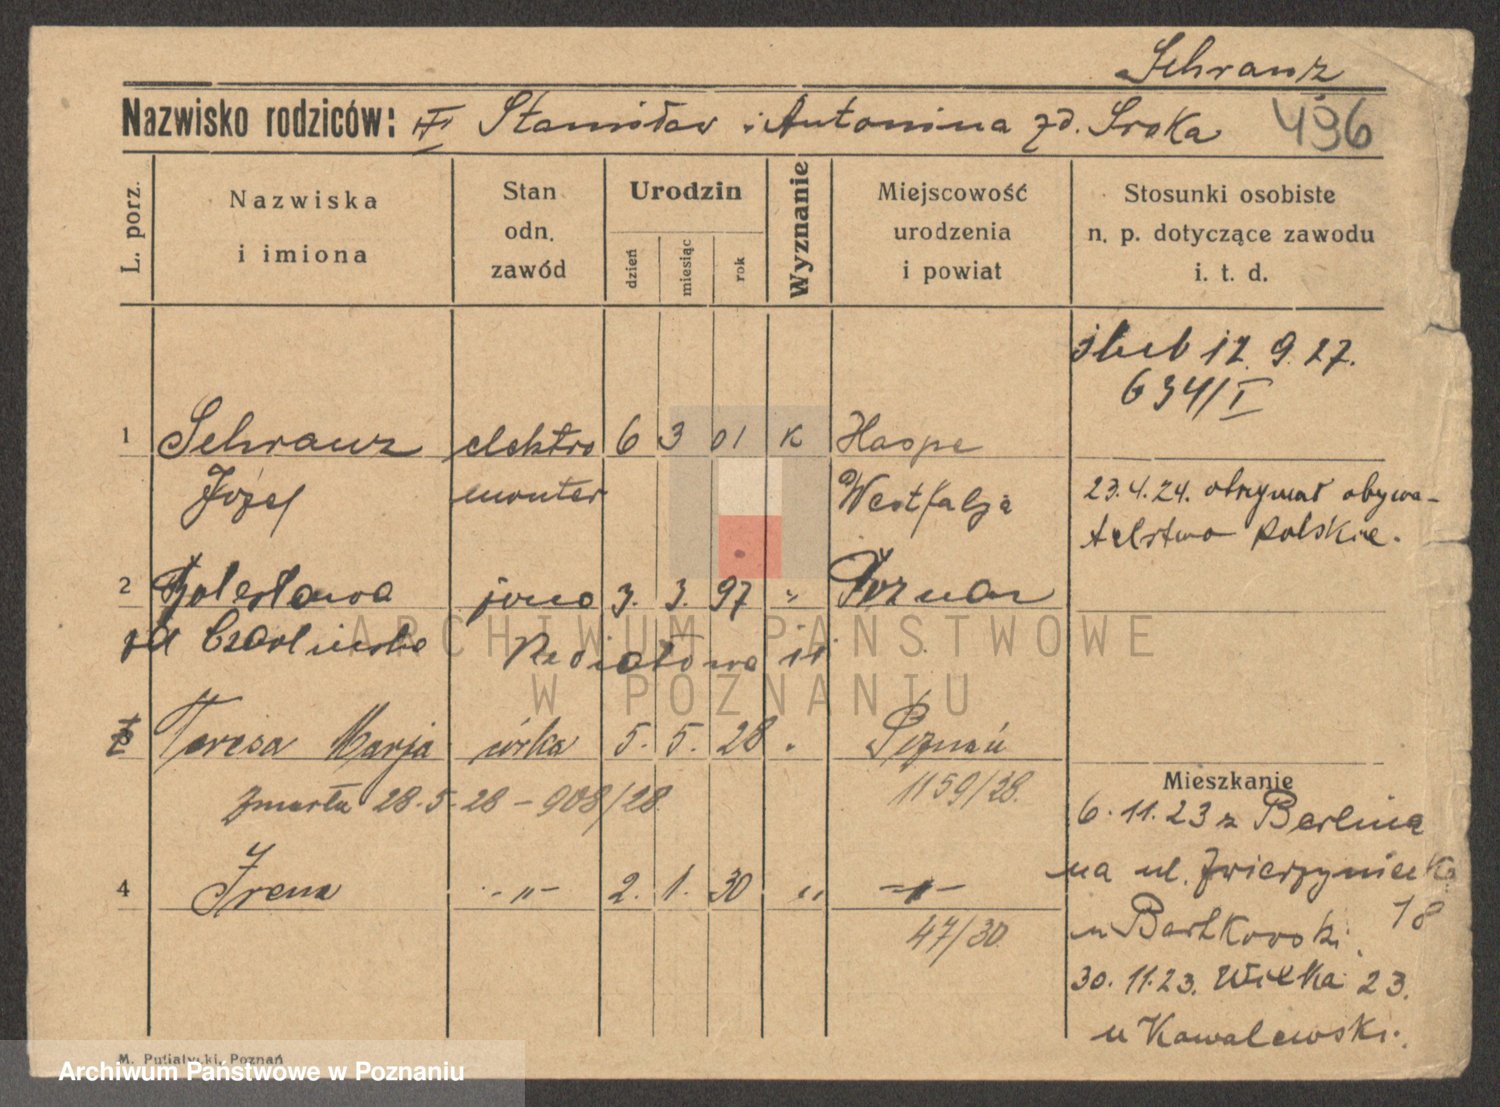 Schranz
Nazwisko rodziców: III Stanisław i Antonina zd. Sroka 496
L. porz.
Nazwiska
i imiona
Stan
odn.
zawód
Urodzin
dzień
miesiąc
rok
Wyznanie
Miejscowość
urodzenia
i powiat
Stosunki osobiste
n. p. dotyczące zawodu
i. t. d.
ślub 12. 9. 27.
634/I
1 Schranz elektro 6 3 01 K Haspe
Józef monter Westfalja
23.4.24. otrzymał obywa-
telstwo Polskie.
2 Bolesława żona 3. 3. 97 " Poznań
zd Czarlińska
3 Teresa Marja córka 5. 5. 28 . Poznań
zmarła 28.5.28 - 908/28 1159/28.
4 Irena -"- 2. 1. 30 " -"-
47/30
Mieszkanie
6.11.23 z Berlina
na ul. Zwierzyniecka
18
u Bartkowski.
30.11.23. Wielka 23.
u Kowalewski.
M. Putiatycki, Poznań
ARCHIWUM PAŃSTWOWE
W POZNANIU
Archiwum Państwowe w Poznaniu